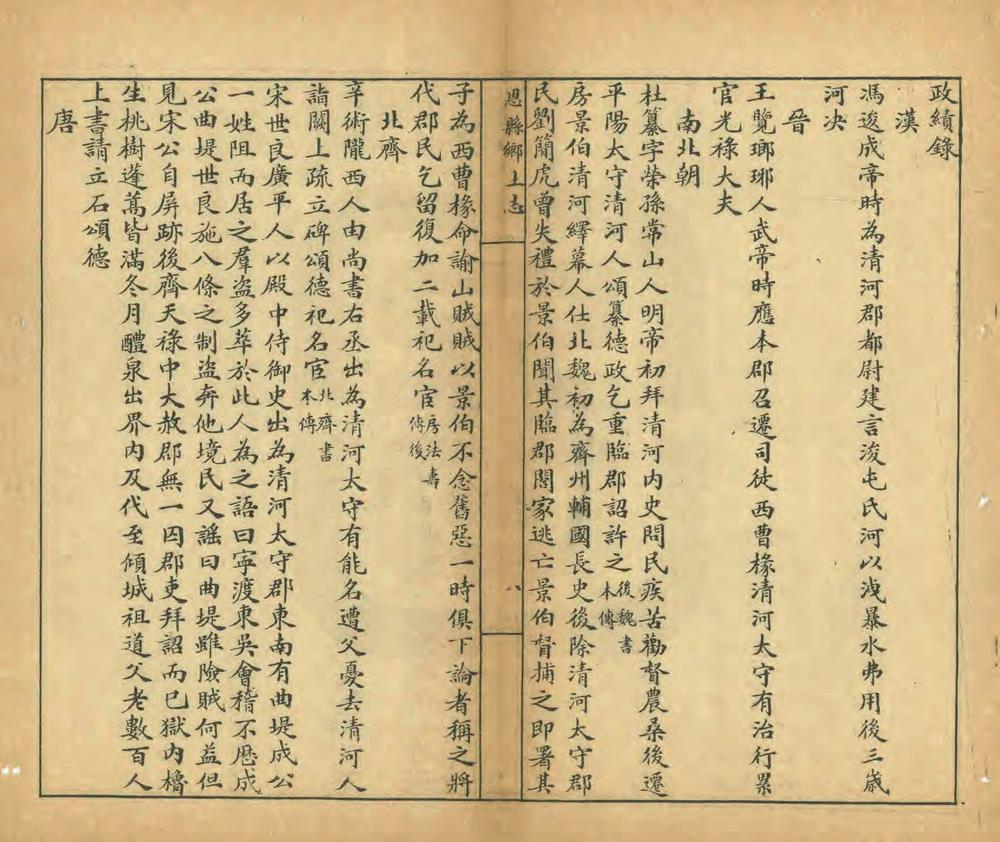 政績錄
漢
馮逡成帝時為清河郡都尉建言浚屯氏河以洩暴水弗用後三歲
河决
晉
王覽瑯琊人武帝時應本郡召遷司徒西曹椽清河太守有治行累
官光祿大夫
南北朝
杜纂字榮孫常山人明帝初拜清河內史問民疾苦勸督農桑後遷
平陽太守清河人頌纂德政乞重臨郡詔許之後魏書本傳
房景伯清河繹幕人仕北魏初為齊州輔國長史後除清河太守郡
民劉簡虎曾失禮於景伯聞其臨郡閤家逃亡景伯督捕之即署其
恩縣鄉土志
八
子為西曹椽命諭山賊賊以景伯不念舊惡一時俱下論者稱之將
代郡民乞留復加二載祀名宦房法壽傳後
北齊
辛術隴西人由尚書右丞出為清河太守有能名遭父憂去清河人
詣闕上疏立碑頌德祀名宦北齊書本傳
宋世良廣平人以殿中侍御史出為清河太守郡東南有曲堤成公
一姓阻而居之羣盜多萃於此人為之語曰寧渡東吳會稽不歷成
公曲堤世良施八條之制盜奔他境民又謠曰曲堤雖險賊何益但
見宋公自屏跡後齊天祿中大赦郡無一囚郡吏拜詔而已獄內櫓
生桃樹蓬蒿皆滿冬月醴泉出界內及代至傾城祖道父老數百人
上書請立石頌德
唐